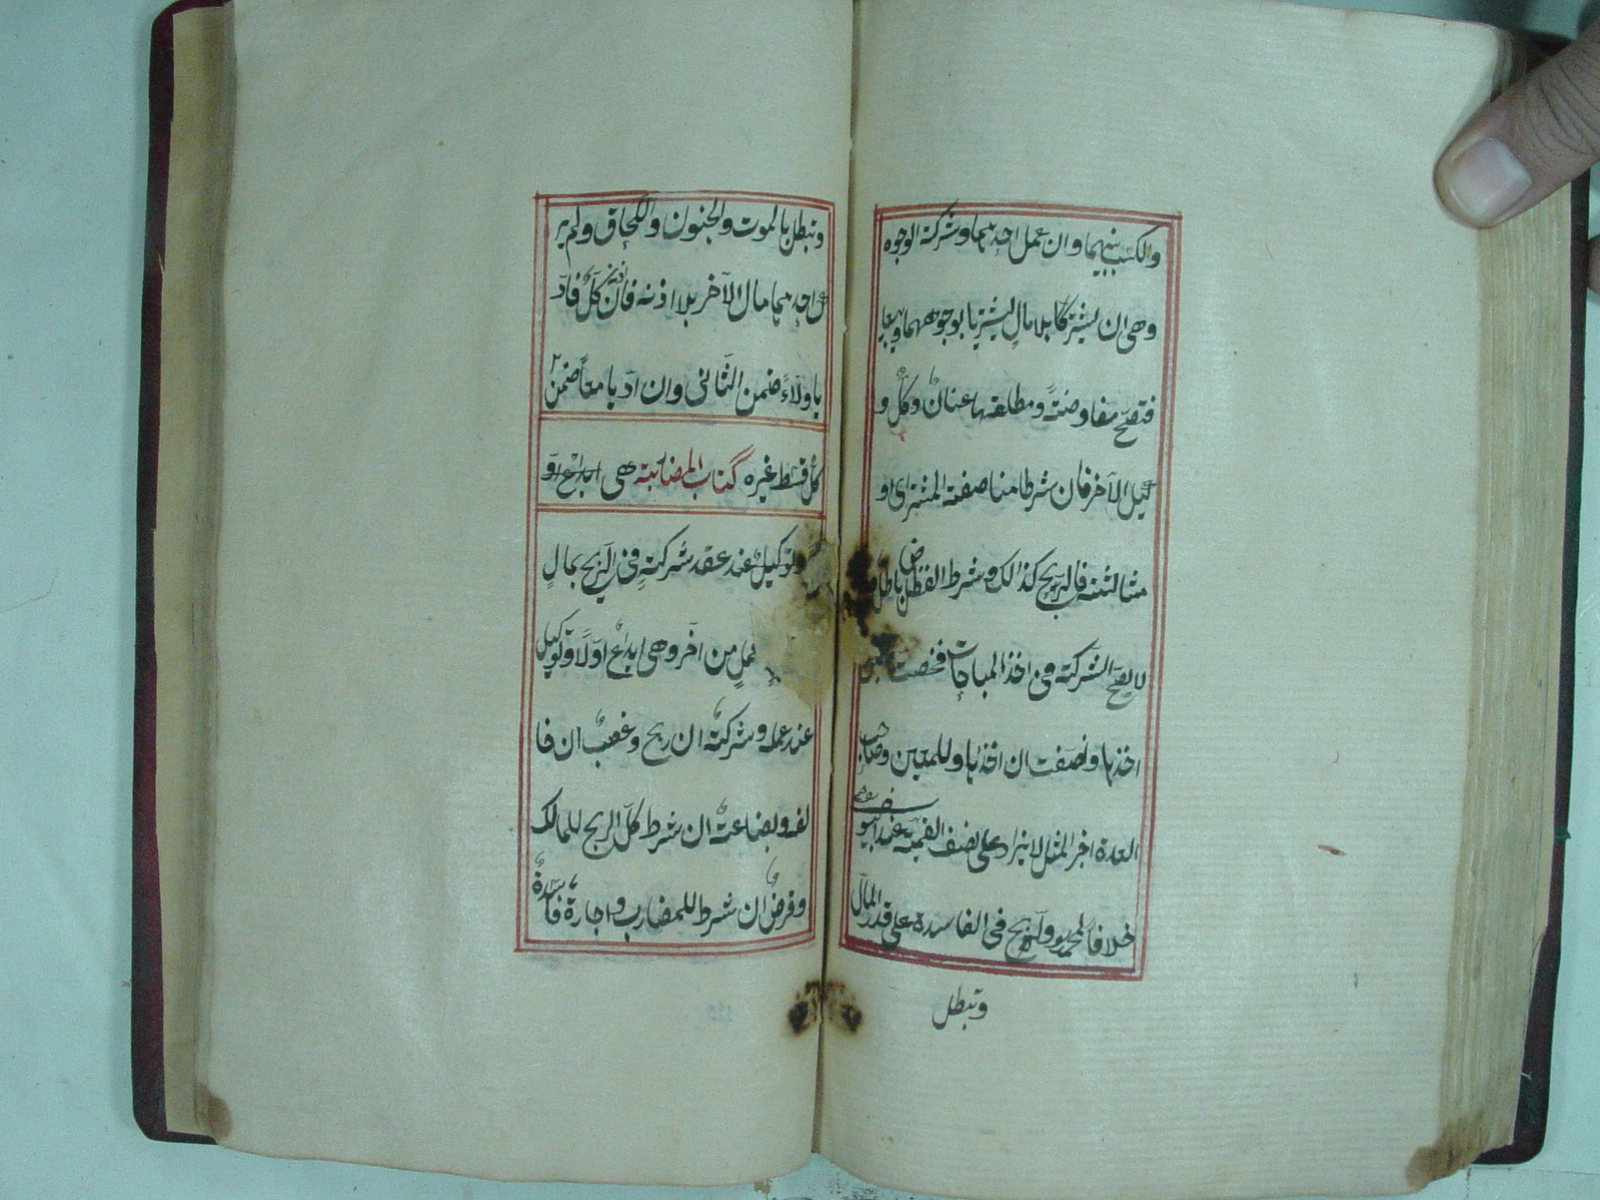 والكسب بينهما وان عمل احدهما وشركة الوجوه
وهى ان يشتركا بلا مال ليشتريا بوجوههما ويبيعا
فتصح مفاوضة ومطلقها عنان وكل و
كيل الآخر فان شرطا مناصفة المشترى او
مثالثته فالربح كذالك وشرط الفضل باطل
لا يصح الشركة فى اخذ المباحات فخصت
اخذها ونصفت ان اخذاها وللمعين وصاحب
العدة اجر المثل لا يزاد على نصف القيمة عند ابى يوسف
خلافا لمحمد والربح فى الفاسدة على قدر المال
وتبطل
وتبطل بالموت والجنون واللحاق ولم يز
ك احدهما مال الآخر بلا اذنه فان اذن كل فاد
يا ولاء ضمن الثانى وان اديا معا ضمن
كل قسط غيره كتاب المضاربة هى
وتوكيل عند عقد شركة فى الربح بمال
عمل من آخر وهى ايداع اولا وتوكيل
عند عمله وشركة ان ربح وغصب ان خا
لف وبضاعة ان شرط كل الربح للمالك
وقرض ان شرط للمضارب واجارة فاسدة